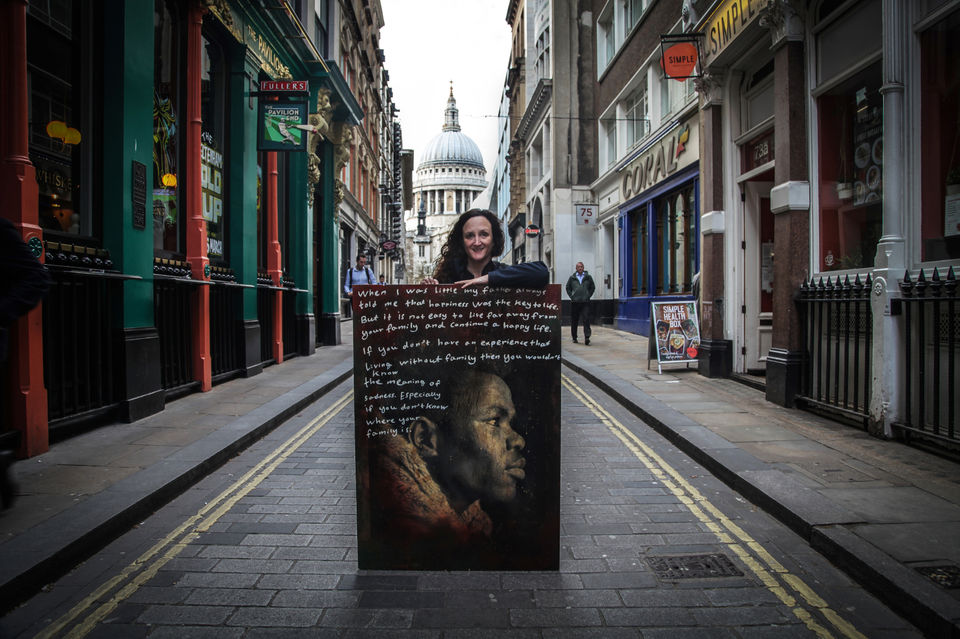 THE PAVILION
FULLERS
THE
PAVILION
END
WHISKY
SIMPLE
SIMPLE
CORAL
73B
75
SIMPLE
HEALTH
BOX
When I was little my father
told me that happiness was the key to life.
But it is not easy to live far away from
your family and continue a happy life.
If you don't have an experience that
living without family then you wouldn't
know
the meaning of
sadness. Especially
if you don't know
where your
family is.